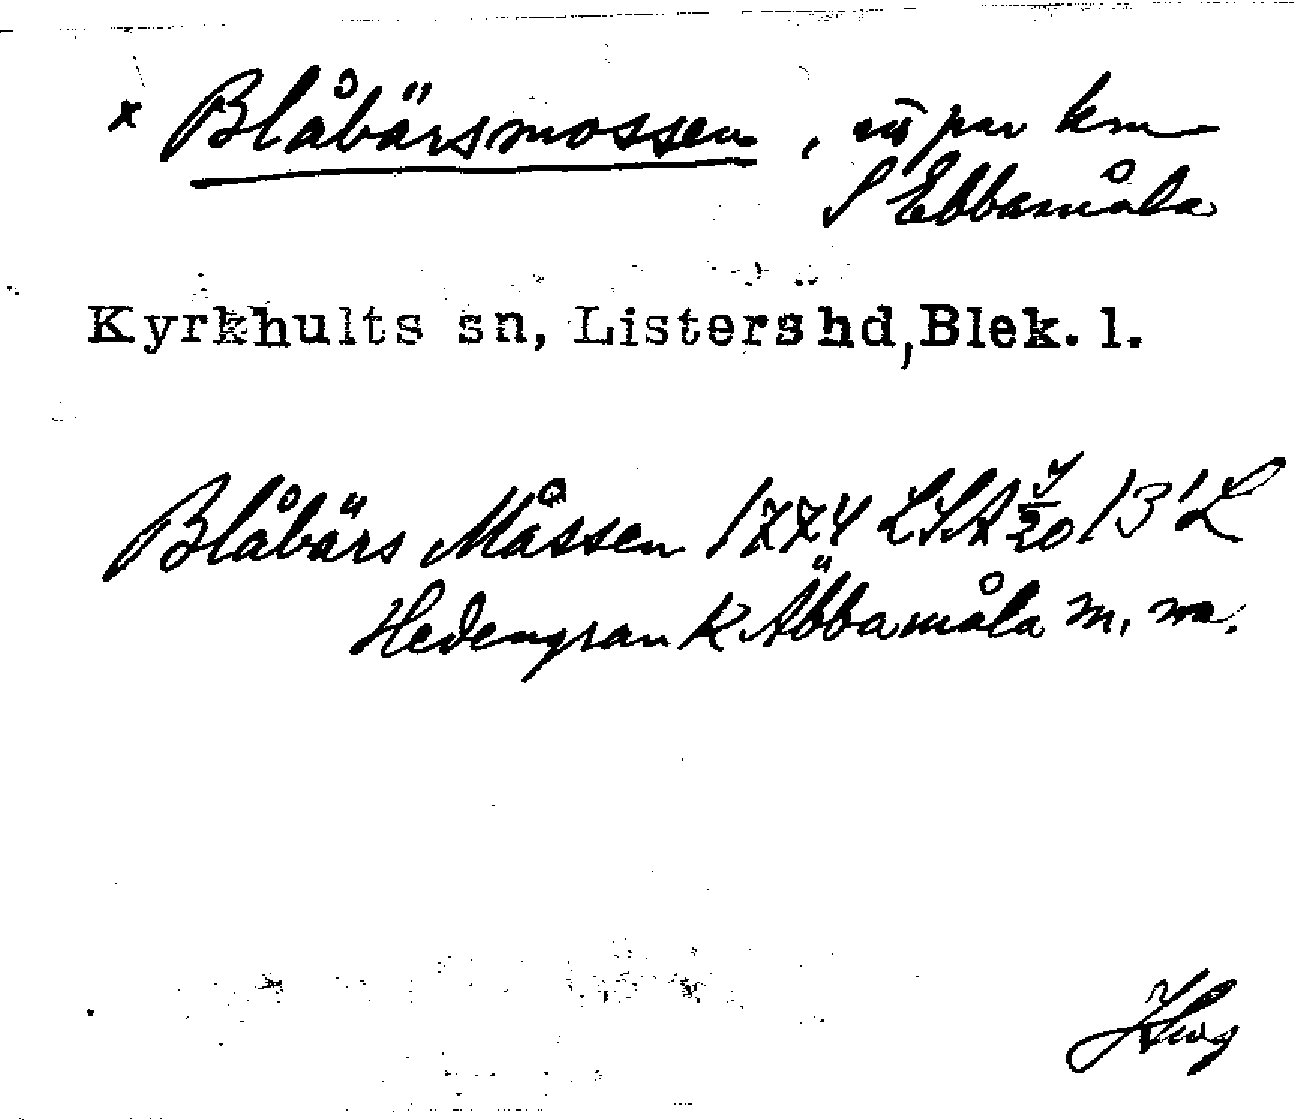 x Blåbärsmossen, ett par km
S Ebbamåla
Kyrkhults sn, Listers hd, Blek. l.
Blåbärs Måssen 1774 LSA 13' L
Hedengran K Äbbamåla m. m.